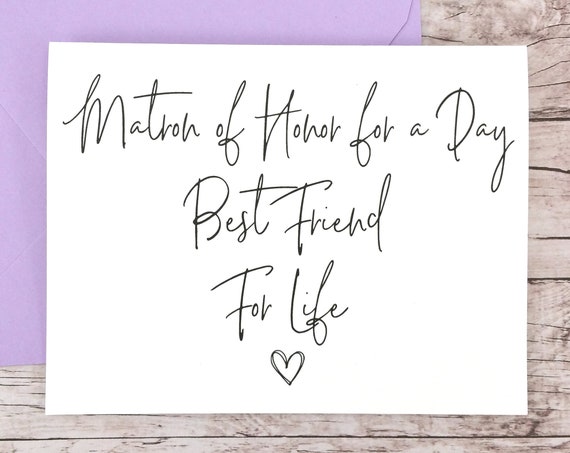 Matron of Honor for a Day
Best Friend
For Life